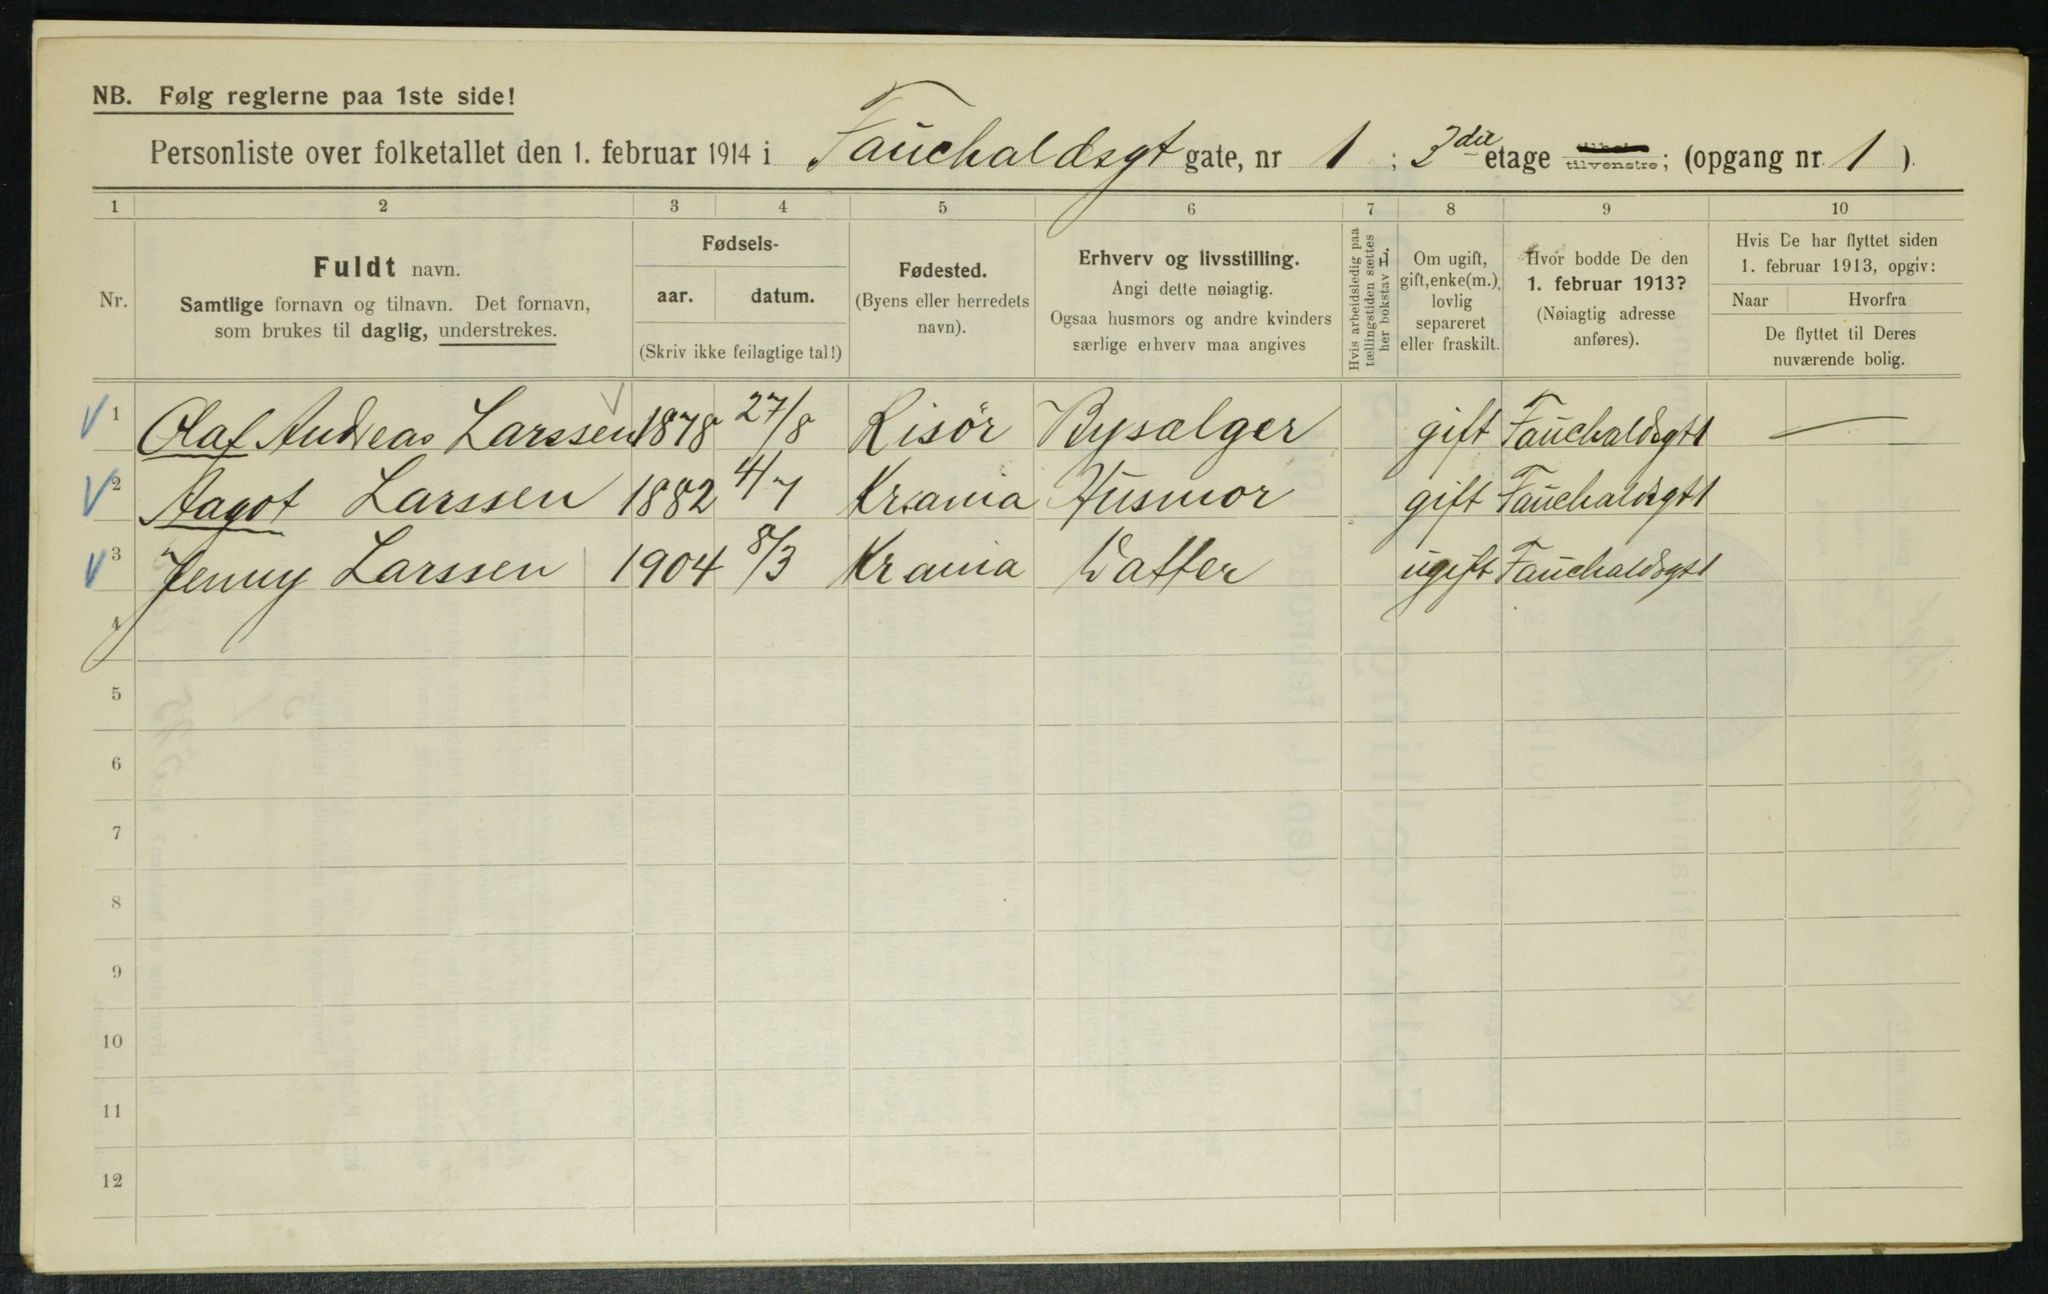 NB. Følg reglerne paa 1ste side!
Personliste over folketallet den 1. februar 1914 i Fauchaldsgt gate, nr 1 ; etage tilvenstre; (opgang nr. 1 ).
1 2 3 4 5 6 7 8 9 10
Nr.
Fuldt navn.
Samtlige fornavn og tilnavn. Det fornavn,
som brukes til daglig, understrekes.
Fødsels-
aar. datum.
(Skriv ikke feilagtige tal!)
Fødested.
(Byens eller herredets
navn).
Erhverv og livsstilling.
Angi dette nøiagtig.
Ogsaa husmors og andre kvinders
særlige erhverv maa angives
Hvis arbeidsledig paa
tællingstiden sættes
her bokstav
Om ugift,
gift, enke(m.),
lovlig
separeret
eller fraskilt.
Hvor bodde De den
1. februar 1913?
(Nøiagtig adresse
anføres).
Hvis De har flyttet siden
1. februar 1913, opgiv:
Naar Hvorfra
De flyttet til Deres
nuværende bolig.
1 Olaf Andreas Larssen 1878 27/8 Risör Bysælger gift Fauchaldsgt 1 —
2 Aagot Larssen 1882 4/7 Krania Husmor gift Fauchaldsgt 1
3 Jenny Larssen 1904 8/3 Krania Datter ugift Fauchaldsgt 1
4
5
6
7
8
9
10
11
12